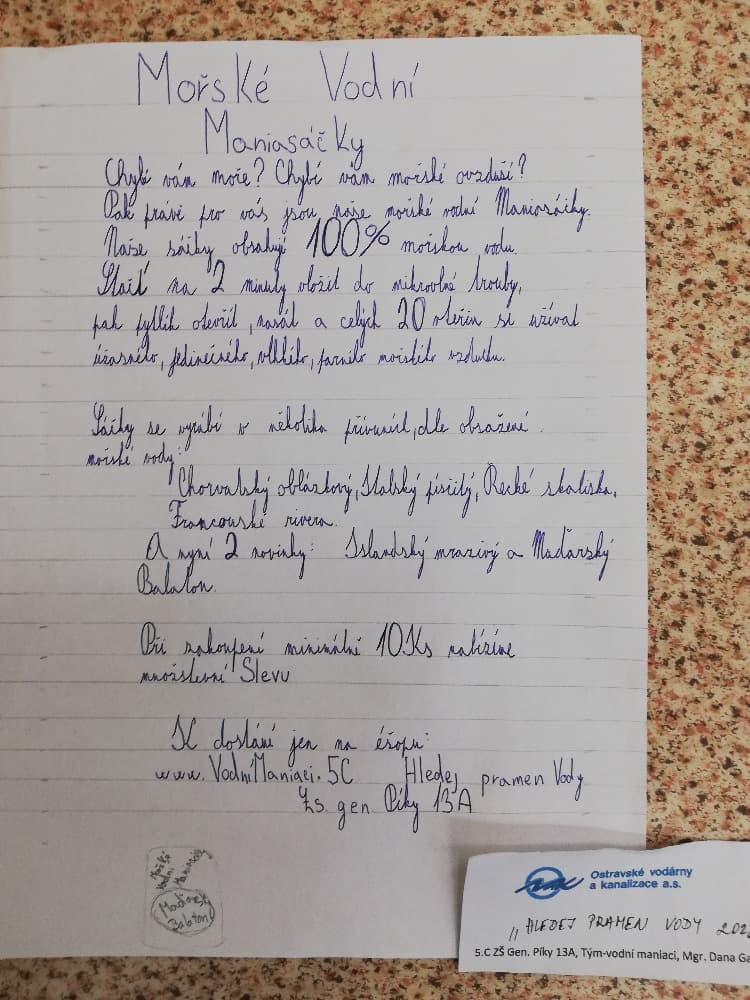 Mořské Vodní
Maniasáčky
Chybí vám moře? Chybí vám mořské ovzduší?
Pak právě pro vás jsou naše mořské vodní Maniasáčky.
Naše sáčky obsahují 100% mořskou vodu.
Stačí na 2 minuty vložit do mikrovlné trouby,
pak pytlík otevřít, nasát a celých 20 vteřin si užívat
úžasného, jedinečného, vlhkého, parního mořského vzduchu.
Sáčky se vyrábí v několika přívuních, dle obsažené
mořské vody:
Chorvatský oblázkový, Italský písčitý, Řecké skaliska,
Francouská rivera.
A nyní 2 novinky: Islandský mrazivý a Maďarský
Balaton.
Při zakoupení minimálně 10Ks nabízíme
množstevní Slevu
K dostání jen na éšopu:
www.VodníManiaci.5C Hledej pramen Vody
Zs. gen. Píky 13A
Mořské
Vodní
Maniasáčky
Maďarský
Balaton
Ostravské vodárny
a kanalizace a.s.
„HLEDEJ PRAMEN VODY
5.C ZŠ Gen. Píky 13A, Tým-vodní maniaci, Mgr. Dana